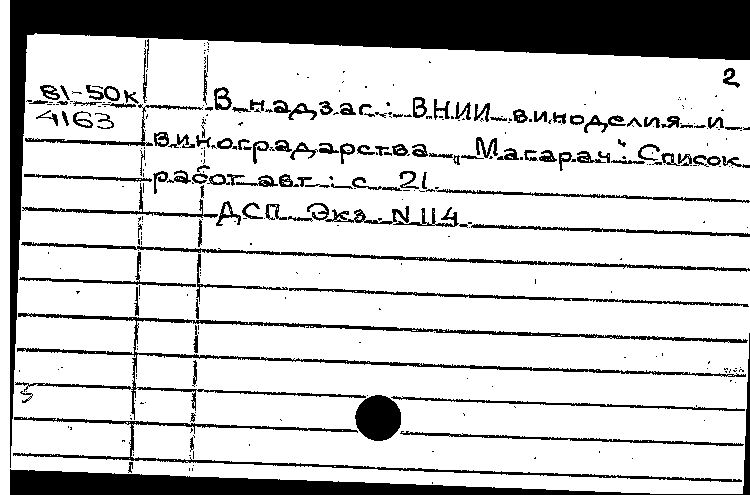 2
81-50к
4163
В надзаг.: ВНИИ виноделия и
виноградарства „Магарач". Список
работ авт.: с. 21.
ДСП. Экз. N 114.